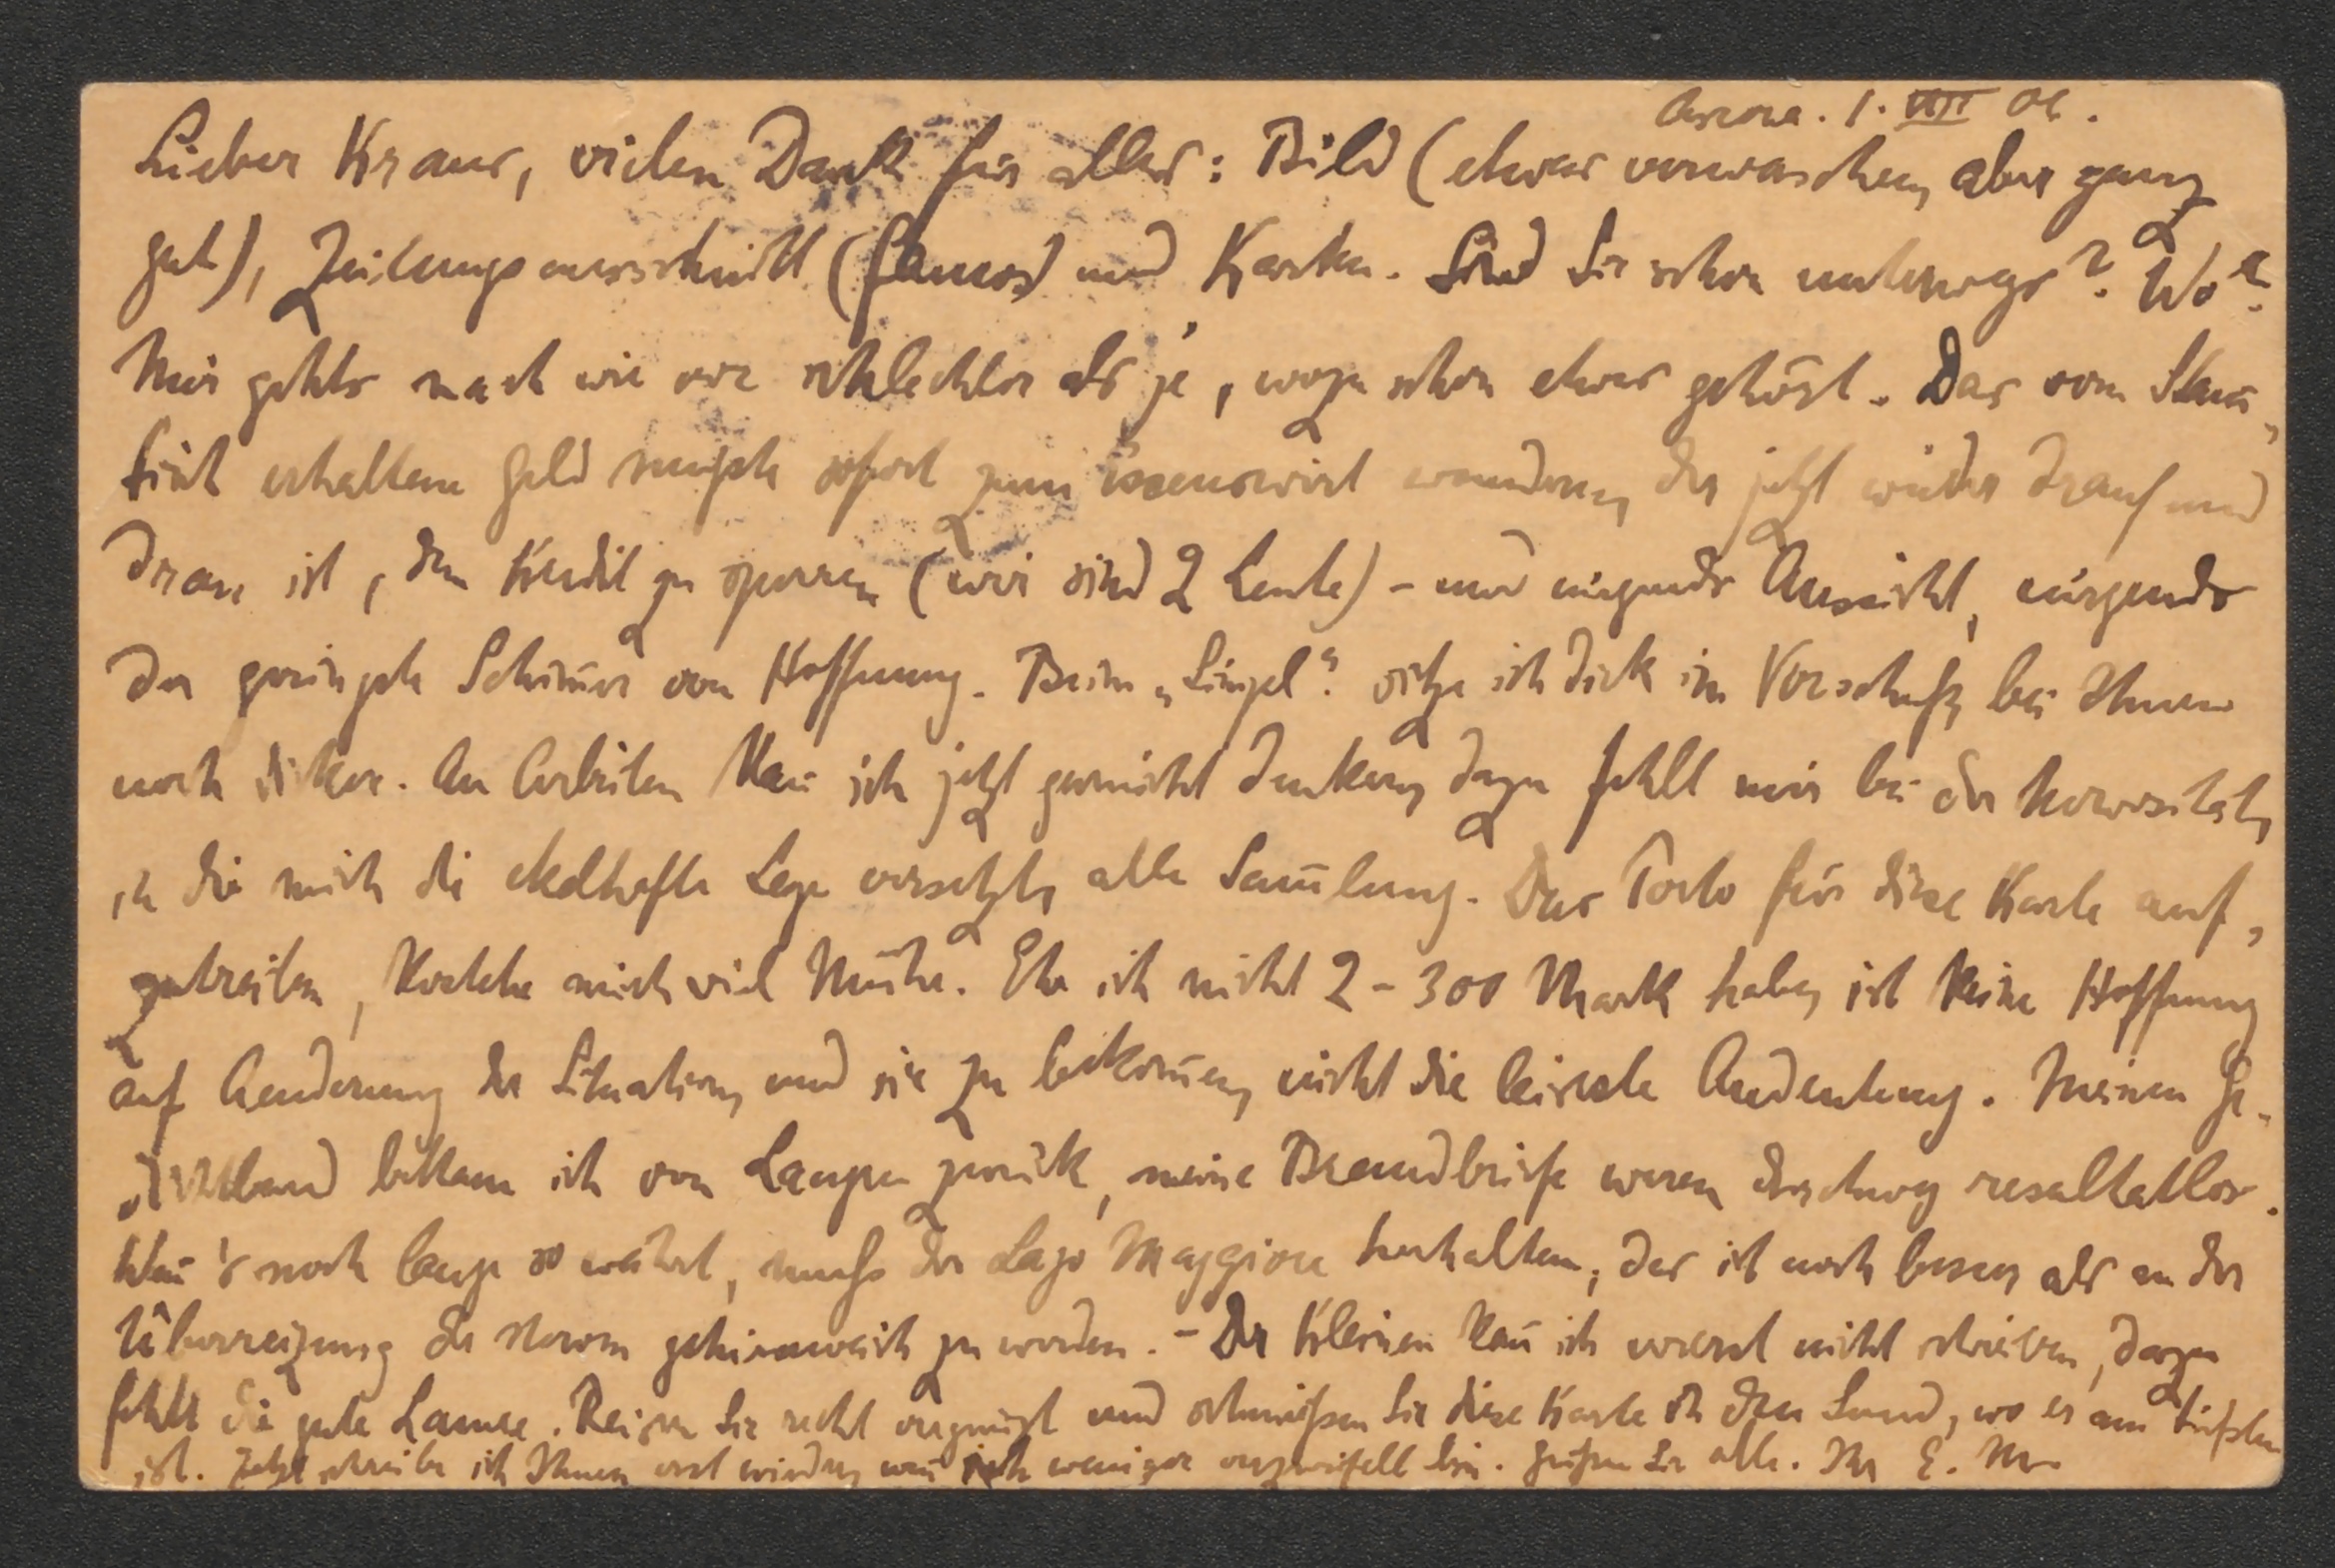 Ascona. 1. VIII 06.
Lieber Kraus, vielen Dank für alles: Bild (etwas verwaschen, aber ganz
gut), Zeitungsausschnitt (famos) und Karten. Sind Sie schon unterwegs? Wo?
Mir gehts nach wie vor schlechter als je, wozu schon etwas gehört. Das vom
erhaltene Geld mußte sofort zum wandern, der jetzt wieder drauf und
dran ist, den Kredit zu sperren (wir sind 2 Leute) – und nirgends Aussicht, nirgends
der geringste Schim̄er von Hoffnung. Beim „Simpl“ sitze ich dick im Vorschuß, bei Ihnen
noch dicker. An Arbeiten kan̄ ich jetzt garnicht denken, dazu fehlt mir bei der Nervosität,
in die mich die ekelhafte Lage versetzt, alle Sam̄lung. Das Porto für diese Karte auf-
zutreiben, kostete mich viel Mühe. Ehe ich nicht 2 – 300 Mark habe, ist keine Hoffnung
auf Aenderung der Situation, und sie zu bekom̄en, nicht die leiseste Andeutung. Meinen Ge-
dichtband bekam ich von Langen zurück, meine Brandbriefe waren durchweg resultatlos.
Wen̄ 's noch lange so währt, muß der Lago Maggiore herhalten; das ist noch besser als an der
Überreizung der Nerven gehirnweich zu werden. – Der Kleinen kan̄ ich vorerst nicht schreiben, dazu
fehlt die gute Laune. Reisen Sie recht vergnügt und schmeißen Sie diese Karte in den Sund, wo er am tiefsten
ist. Jetzt schreibe ich Ihnen erst wieder, wen̄ ich weniger verzweifelt bin. Grüßen Sie alle. Ihr E. M.